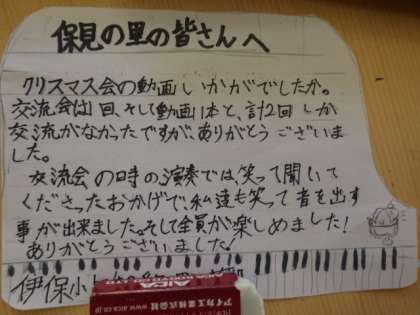 保見の里の皆さんへ
クリスマス会の動画いかがでしたか。
交流会は1回、そして動画1本と、計2回しか
交流がなかったですが、ありがとうございま
した。
交流会の時の演奏では笑って聞いて
くださったおかげで、私達も笑って音を出す
事が出来ました。そして全員が楽しめました!
ありがとうございました!
伊保小
AICA
アイカ工業株式会社
www.aica.co.jp